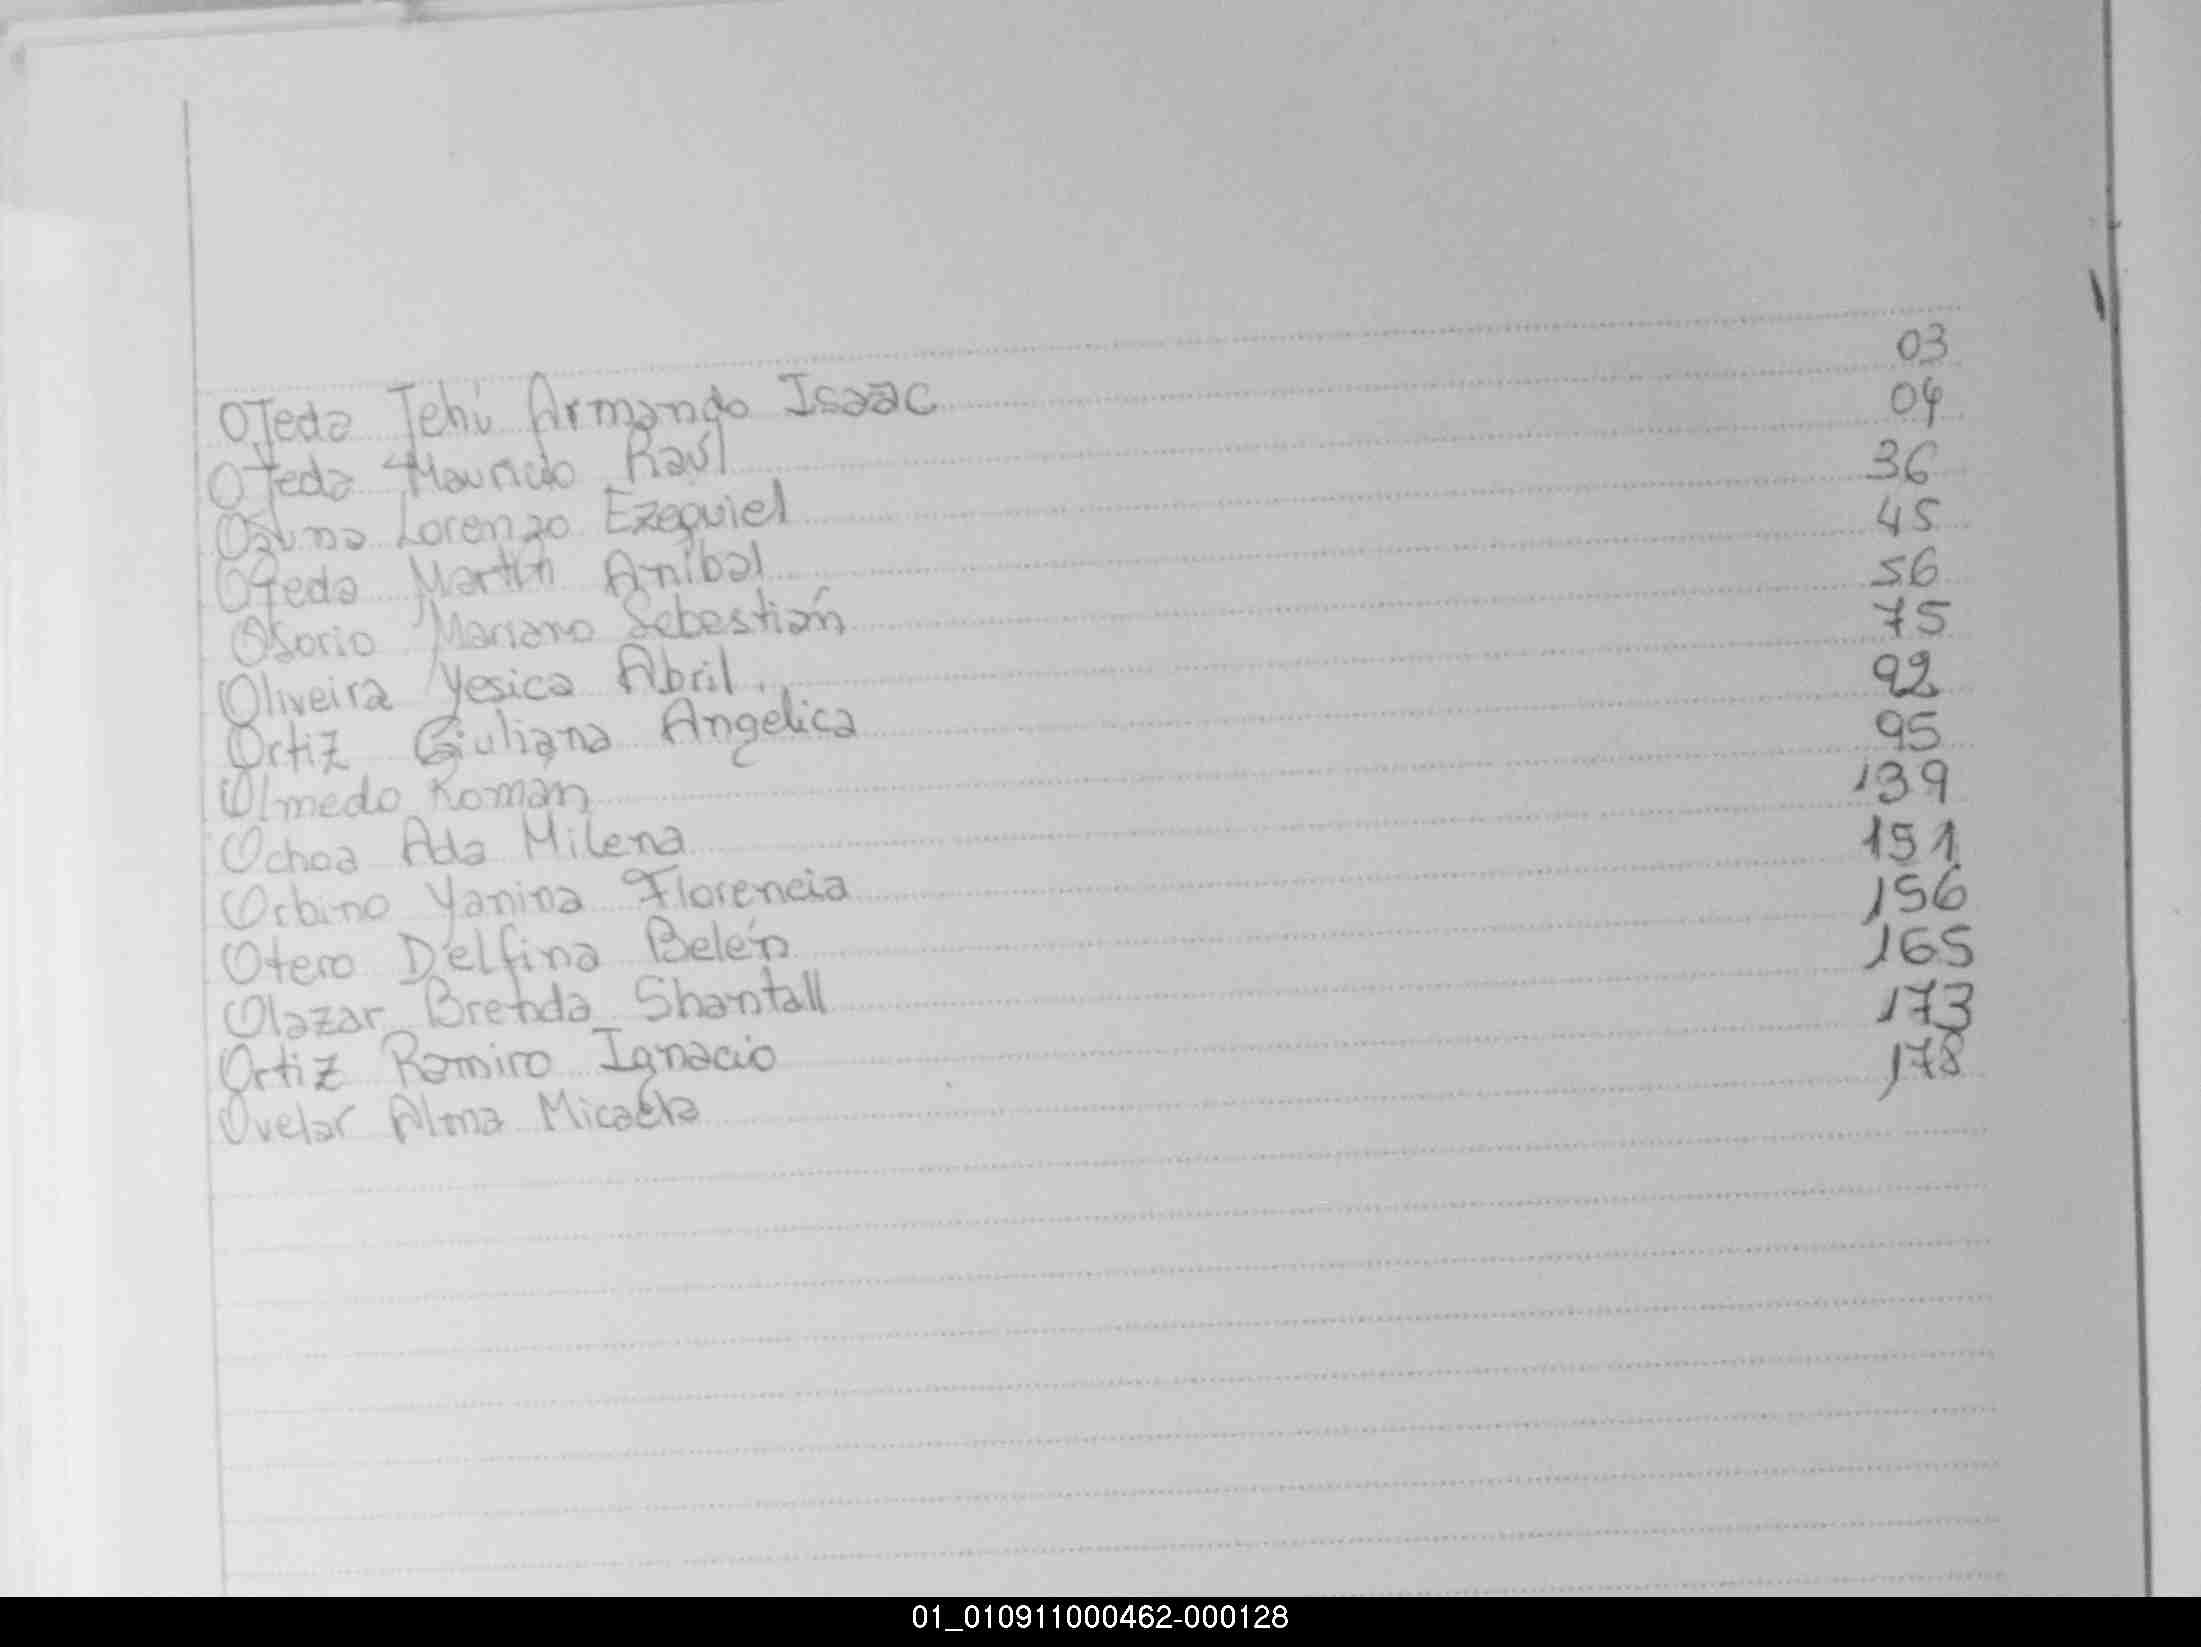 Ojeda Jehú Armando Isaac 03
Ojeda Mauricio Raúl 04
Ozuna Lorenzo Ezequiel 36
Ojeda Martín Aníbal 45
Osorio Mariano Sebestián 56
Oliveira Yesica Abril. 75
Ortiz Giuliana Angelica 92
Olmedo Roman 95
Ochoa Ada Milena 139
Orbino Yanina Florencia 151
Otero Delfina Belén 156
Olazar Brenda Shantall 165
Ortiz Ramiro Ignacio 173
Ovelar Alma Micaela 178
01_010911000462-000128